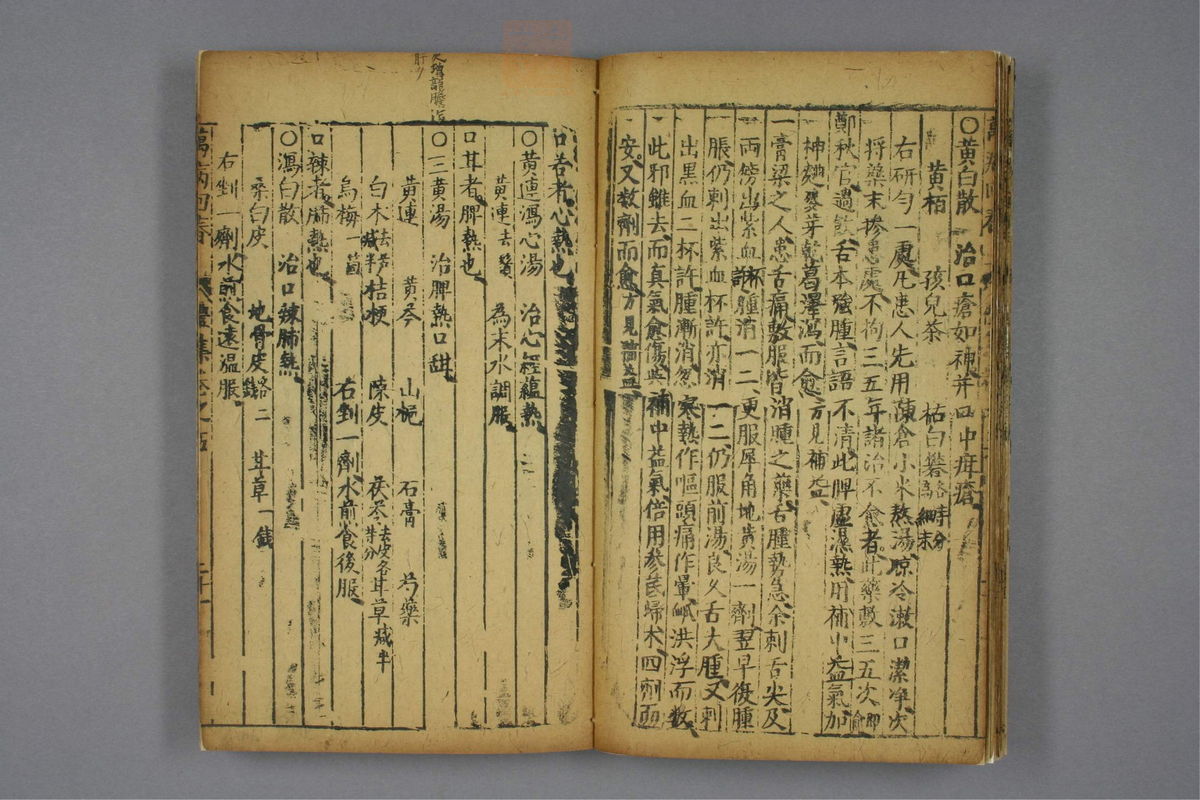 ○黃白散　治口瘡如神并口中疳瘡
黃栢　孩兒茶　枯白礬各等分爲細末
右研勻一處凡患人先用陳倉小米熬湯晾冷漱口潔淨次
將藥末摻患處不拘三五年諸治不愈者此藥敷三五次即愈
鄭秋官過飲舌本強腫言語不清此脾虛濕熱用補中益氣加
神麯麥芽乾葛澤瀉而愈方見補益
一膏梁之人患舌痛敷服皆消腫之藥舌腫勢急余刺舌尖及
兩傍出紫血杯許腫消一二更服犀角地黃湯一劑翌早復腫
脹仍刺出紫血杯許亦消一二仍服前湯良久舌大腫又刺
出黑血二杯許腫漸消忽寒熱作嘔頭痛作暈脉洪浮而數
此邪雖去而真氣愈傷與補中益氣倍用參芪歸术四劑而
安又數劑而愈方見補益
口苦者心熱也
○黃連瀉心湯　治心經蘊熱
黃連去鬚　為末水調服
口甘者脾熱也
○三黃湯　治脾熱口甜
黃連　黃芩　山梔　石膏　芍藥
白术去蘆減半　桔梗　陳皮　茯苓去皮各等分　甘草減半
烏梅一箇　右剉一劑水煎食後服
口辣者肺熱也
○瀉白散　治口辣肺熱
桑白皮　地骨皮各二錢　甘草一錢
右剉一劑水煎食遠溫服
萬病回春